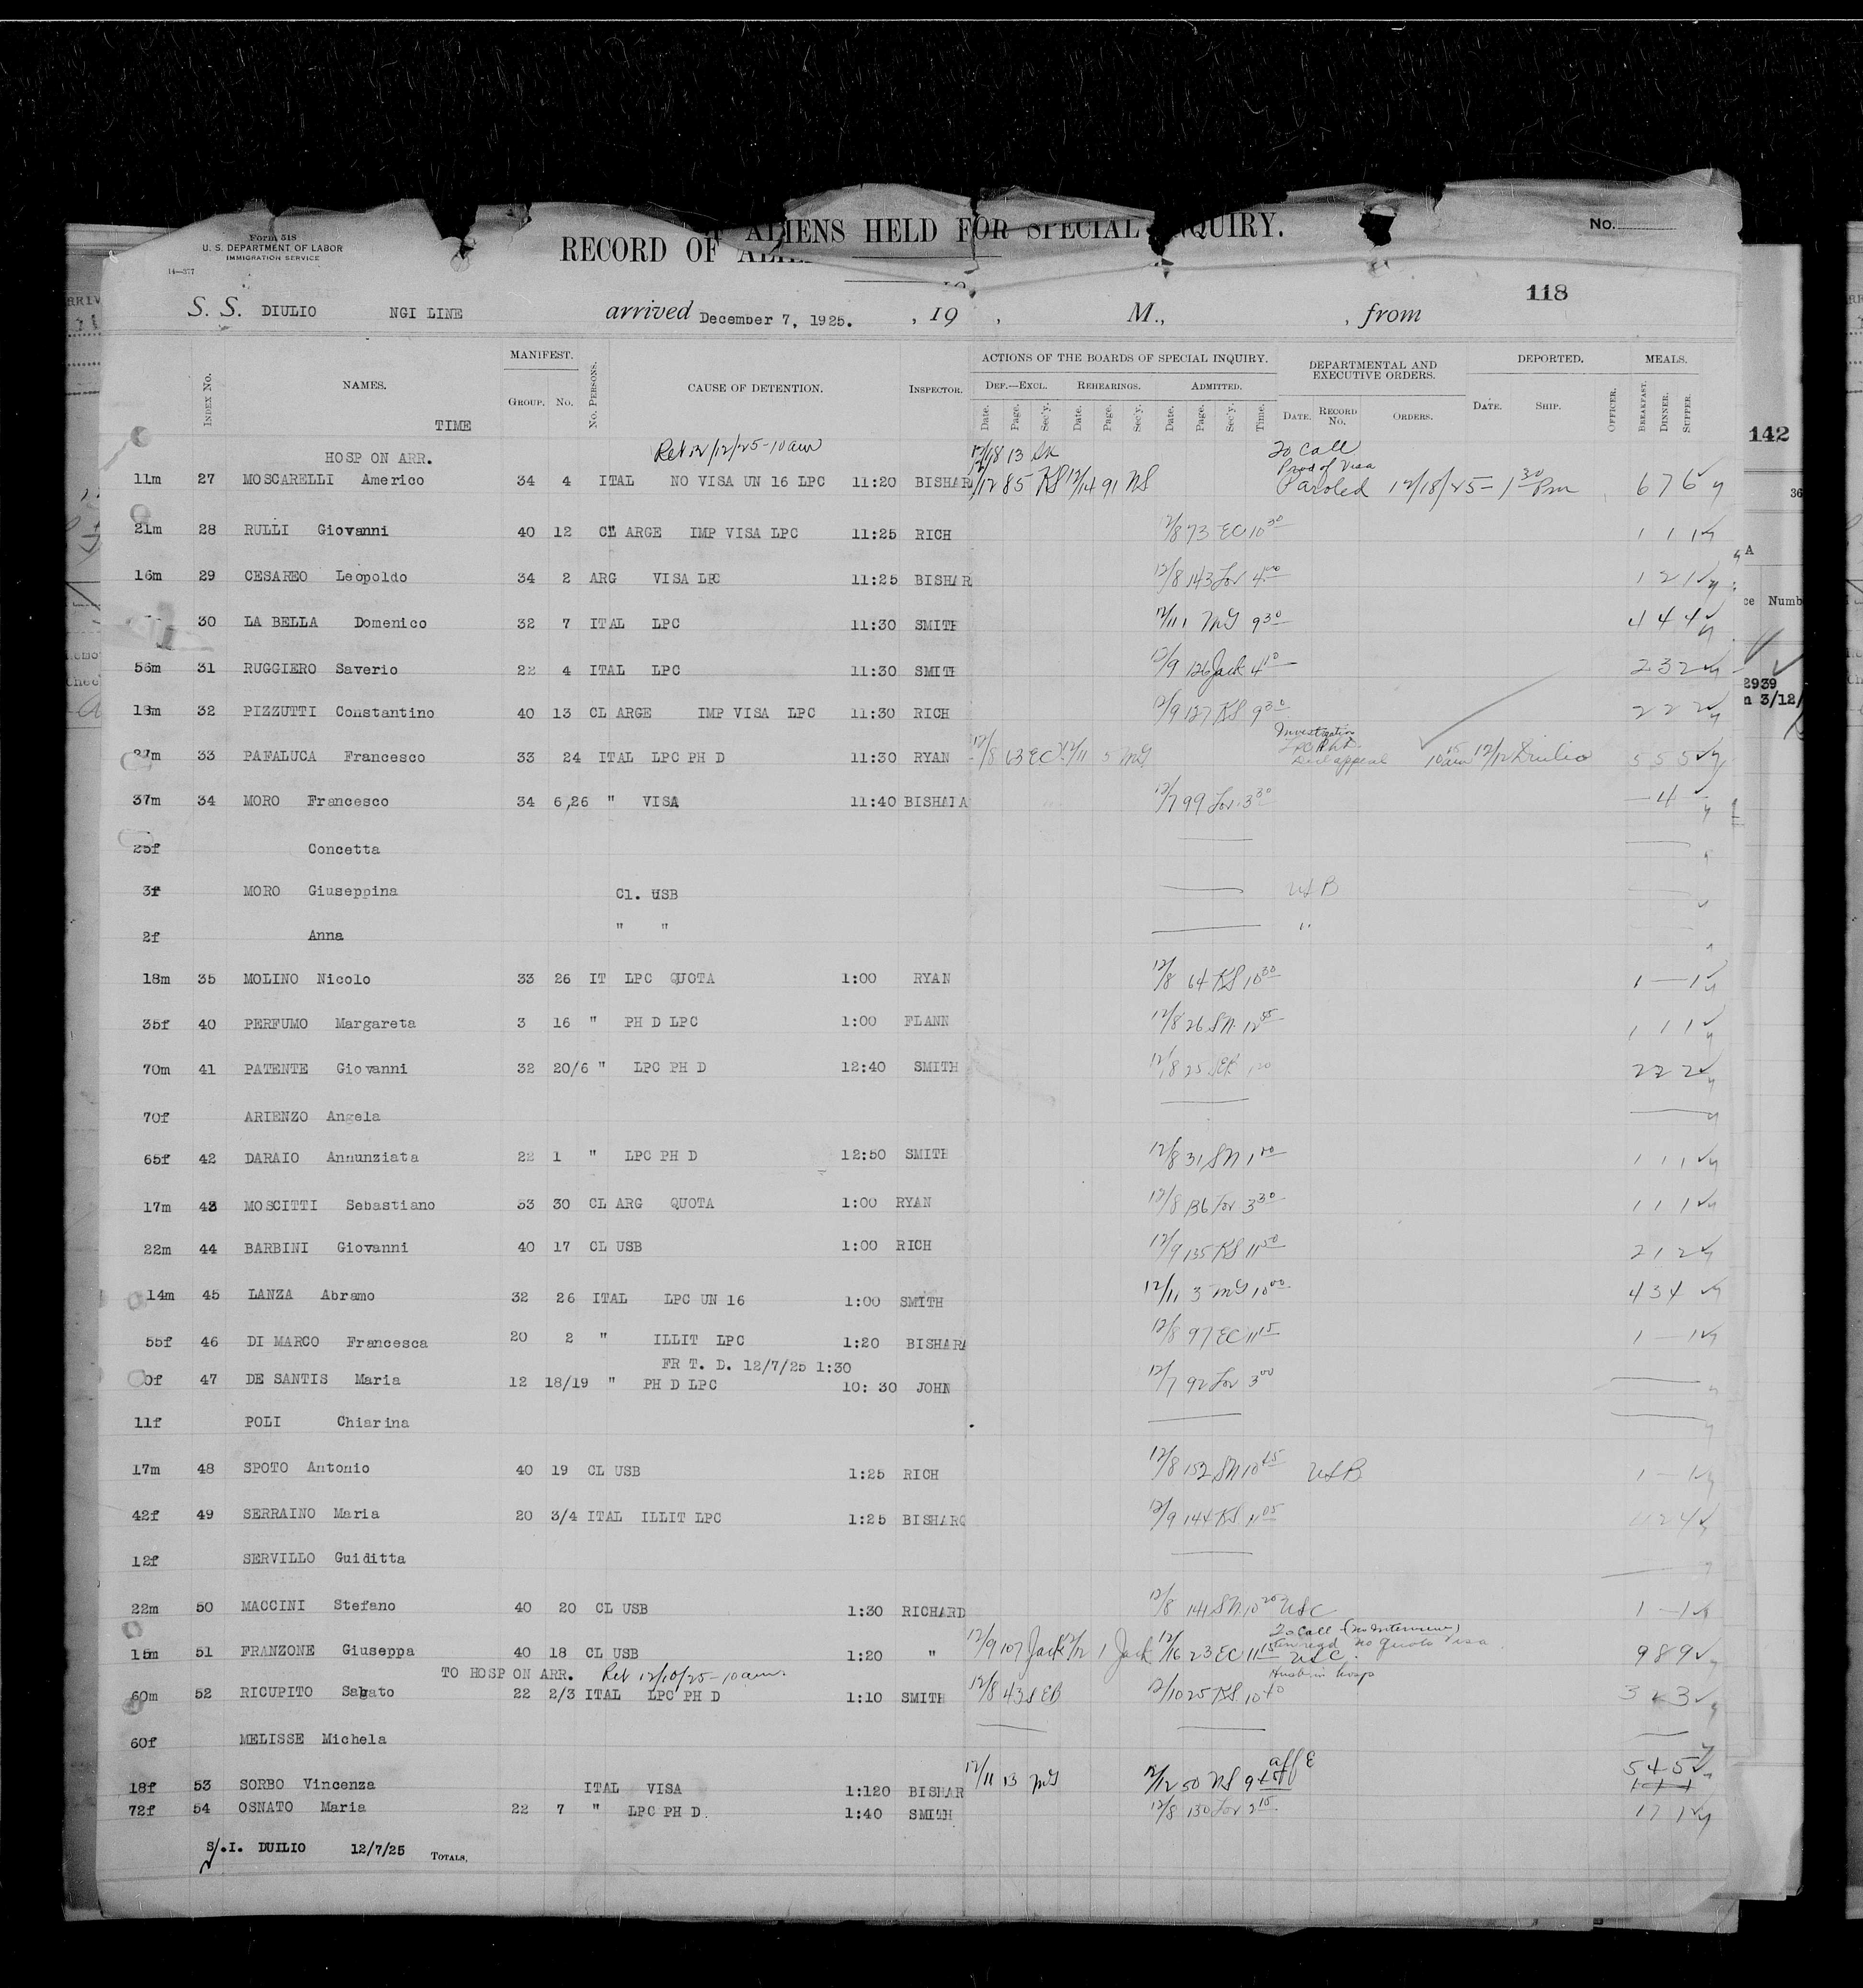 Form 518
U. S. DEPARTMENT OF LABOR
IMMIGRATION SERVICE
14—377
ALIENS HELD FOR SPECIAL INQUIRY.
RECORD OF
No.
118
S. S. DIULIO NGI LINE arrived December 7, 1925. , 19 , M., , from
INDEX No. NAMES. MANIFEST. No. PERSONS. CAUSE OF DETENTION. INSPECTOR. ACTIONS OF THE BOARDS OF SPECIAL INQUIRY. DEPARTMENTAL AND EXECUTIVE ORDERS. DEPORTED. MEALS.
GROUP. No. DEF.—EXCL. REHEARINGS. ADMITTED.
Date. Page. Sec'y. Date. Page. Sec'y. Date. Page. Sec'y. Time. DATE. RECORD No. ORDERS. DATE. SHIP. OFFICER. BREAKFAST. DINNER. SUPPER.
TIME
142
HOSP ON ARR. Ret 12/12/25-10am 12/18 13 To Call
Prod of Visa
11m 27 MOSCARELLI Americo 34 4 ITAL NO VISA UN 16 LPC 11:20 BISHAR 12/12 85 KS 12/14 91 NS Paroled 12/18/25-1 30 Pm 6 7 6
21m 28 RULLI Giovanni 40 12 CL ARGE IMP VISA LPC 11:25 RICH 12/8 73 EC 10 30 1 1 1
16m 29 CESAREO Leopoldo 34 2 ARG VISA LPC 11:25 BISHAR 12/8 143 Lov 4 00 1 2 1
30 LA BELLA Domenico 32 7 ITAL LPC 11:30 SMITH 12/11 1 MG 9 30 4 4 4
56m 31 RUGGIERO Saverio 22 4 ITAL LPC 11:30 SMITH 12/9 126 Jack 4 10 2 3 2
18m 32 PIZZUTTI Constantino 40 13 CL ARGE IMP VISA LPC 11:30 RICH 12/9 127 KS 9 30 2 2 2
Investigation
27m 33 PAFALUCA Francesco 33 24 ITAL LPC PH D 11:30 RYAN 12/8 63 EC 12/11 5 MG appeal 10 15 am 12/12 Diulio 5 5 5
37m 34 MORO Francesco 34 6,26 " VISA 11:40 BISHAIA 12/7 99 Lov 3 30 — 4 —
25f Concetta
3f MORO Giuseppina Cl. USB USB
2f Anna " " "
18m 35 MOLINO Nicolo 33 26 IT LPC QUOTA 1:00 RYAN 12/8 64 KS 10 30 1 — 1
35f 40 PERFUMO Margareta 3 16 " PH D LPC 1:00 FLANN 12/8 26 SN 12 55 1 1 1
70m 41 PATENTE Giovanni 32 20/6 " LPC PH D 12:40 SMITH 12/8 25 2 2 2
70f ARIENZO Angela
65f 42 DARAIO Annunziata 22 1 " LPC PH D 12:50 SMITH 12/8 31 SN 1 10 1 1 1
17m 43 MOSCITTI Sebastiano 33 30 CL ARG QUOTA 1:00 RYAN 12/8 136 Lov 3 30 1 1 1
22m 44 BARBINI Giovanni 40 17 CL USB 1:00 RICH 12/9 135 KS 11 50 2 1 2
14m 45 LANZA Abramo 32 26 ITAL LPC UN 16 1:00 SMITH 12/11 3 MG 10 00 4 3 4
55f 46 DI MARCO Francesca 20 2 " ILLIT LPC 1:20 BISHARA 12/8 97 EC 11 15 1 — 1
FR T. D. 12/7/25 1:30
0f 47 DE SANTIS Maria 12 18/19 " PH D LPC 10:30 JOHN 12/7 92 Lov 3 00
11f POLI Chiarina
17m 48 SPOTO Antonio 40 19 CL USB 1:25 RICH 12/8 152 SN 10 45 USB 1 — 1
42f 49 SERRAINO Maria 20 3/4 ITAL ILLIT LPC 1:25 BISHARC 12/9 144 KS 11 05 4 2 4
12f SERVILLO Guiditta
22m 50 MACCINI Stefano 40 20 CL USB 1:30 RICHARD 12/8 141 SN 10 20 USC 1 — 1
To Call (no Interview)
15m 51 FRANZONE Giuseppa 40 18 CL USB 1:20 " 12/9 107 Jack 12/12 1 Jack 12/16 23 EC 11 15 USC. no Quota Visa 9 8 9
TO HOSP ON ARR. Ret 12/10/25-10am. Husb in hosp
60m 52 RICUPITO Sabato 22 2/3 ITAL LPC PH D 1:10 SMITH 12/8 43 SEB 12/10 25 KS 10 40 3 3
60f MELISSE Michela
18f 53 SORBO Vincenza ITAL VISA 1:120 BISHAR 12/11 13 MG 12/12 50 NS 9 45 aff E 5 4 5
72f 54 OSNATO Maria 22 7 " LPC PH D. 1:40 SMITH 12/8 130 Lov 2 15 1 1
S/.I. DUILIO 12/7/25 TOTALS,